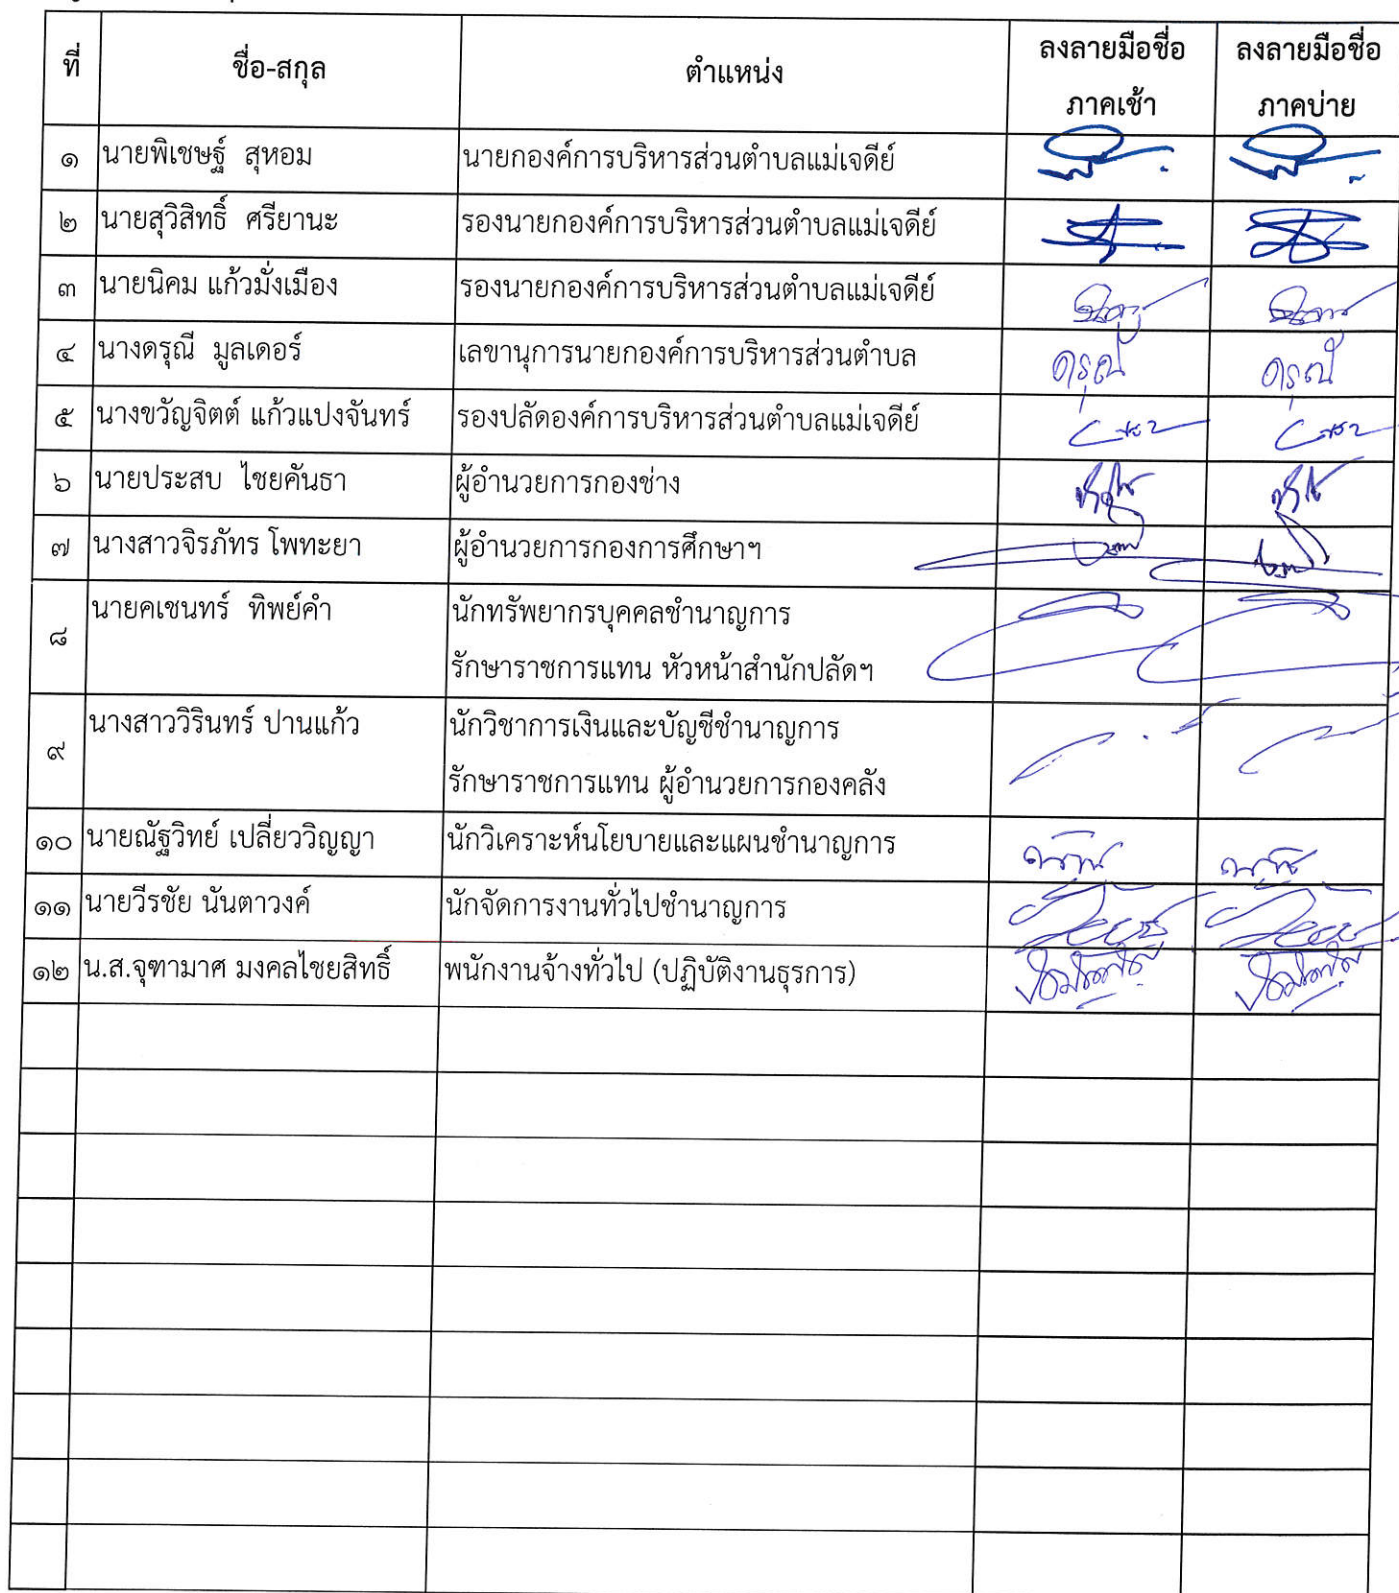 ที่ ชื่อ-สกุล ตำแหน่ง ลงลายมือชื่อ ลงลายมือชื่อ
ภาคเช้า ภาคบ่าย
๑ นายพิเชษฐ์ สุหอม นายกองค์การบริหารส่วนตำบลแม่เจดีย์
๒ นายสุวิสิทธิ์ ศรียานะ รองนายกองค์การบริหารส่วนตำบลแม่เจดีย์
๓ นายนิคม แก้วมั่งเมือง รองนายกองค์การบริหารส่วนตำบลแม่เจดีย์
๔ นางดรุณี มูลเดอร์ เลขานุการนายกองค์การบริหารส่วนตำบล ดรุณี ดรุณี
๕ นางขวัญจิตต์ แก้วแปงจันทร์ รองปลัดองค์การบริหารส่วนตำบลแม่เจดีย์
๖ นายประสบ ไชยคันธา ผู้อำนวยการกองช่าง
๗ นางสาวจิรภัทร โพทะยา ผู้อำนวยการกองการศึกษาฯ
๘ นายคเชนทร์ ทิพย์คำ นักทรัพยากรบุคคลชำนาญการ
รักษาราชการแทน หัวหน้าสำนักปลัดฯ
๙ นางสาววิรินทร์ ปานแก้ว นักวิชาการเงินและบัญชีชำนาญการ
รักษาราชการแทน ผู้อำนวยการกองคลัง
๑๐ นายณัฐวิทย์ เปลี่ยววิญญา นักวิเคราะห์นโยบายและแผนชำนาญการ
๑๑ นายวีรชัย นันตาวงค์ นักจัดการงานทั่วไปชำนาญการ
๑๒ น.ส.จุฑามาศ มงคลไชยสิทธิ์ พนักงานจ้างทั่วไป (ปฏิบัติงานธุรการ)